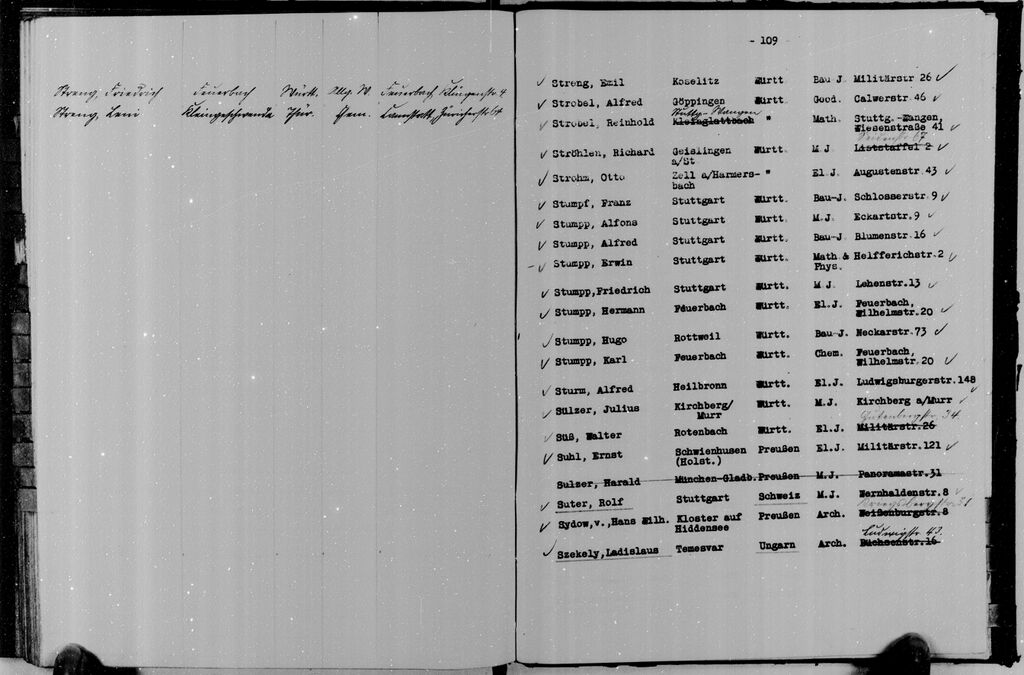 Streng, Friedrich Feuerbach Württ. Allg. W. Feuerbach, Klingenstr. 4
Streng, Leni Kleingeschwenda Thür. Chem. Cannstatt, Züricherstr. 64
- 109
✓ Streng, Emil Koselitz Württ Bau J. Militärstr 26 ✓
✓ Strobel, Alfred Göppingen Württ. Geod. Calwerstr. 46 ✓
Stuttg.-Wangen
✓ Strobel, Reinhold Kleinglattbach " Math. Stuttg.-Wangen,
Wiesenstraße 41 ✓
67
✓ Ströhlen, Richard Geislingen Württ. M J Liststaffel 2 ✓
a/St
✓ Strohm, Otto Zell a/Harmers- " El J. Augustenstr. 43 ✓
bach
✓ Stumpf, Franz Stuttgart Württ. Bau-J. Schlosserstr. 9 ✓
✓ Stumpp, Alfons Stuttgart Württ. M.J. Eckartstr. 9 ✓
✓ Stumpp, Alfred Stuttgart Württ. Bau-J Blumenstr. 16 ✓
- ✓ Stumpp, Erwin Stuttgart Württ. Math & Helfferichstr. 2 ✓
Phys.
✓ Stumpp, Friedrich Stuttgart Württ. M J. Lehenstr. 13 ✓
✓ Stumpp, Hermann Feuerbach Württ. El.J. Feuerbach,
Wilhelmstr. 20 ✓
✓ Stumpp, Hugo Rottweil Württ. Bau-J. Neckarstr. 73 ✓
✓ Stumpp, Karl Feuerbach Württ. Chem. Feuerbach,
Wilhelmstr. 20 ✓
✓ Sturm, Alfred Heilbronn Württ. El.J. Ludwigsburgerstr. 148 ✓
✓ Sülzer, Julius Kirchberg/ Württ. M.J. Kirchberg a/Murr ✓
Murr
Gutenbergstr. 34.
✓ Süß, Walter Rotenbach Württ. El.J. Militärstr. 26
✓ Suhl, Ernst Schwienhusen Preußen El.J. Militärstr. 121 ✓
(Holst.)
Sulzer, Harald München-Gladb. Preußen M.J. Panoramastr. 31
✓ Suter, Rolf Stuttgart Schweiz M.J. Wernhaldenstr. 8 ✓
31
✓ Sydow, v., Hans Wilh. Kloster auf Preußen Arch. Weißenburgstr. 8
Hiddensee
Ludwigstr. 43.
✓ Szekely, Ladislaus Temesvar Ungarn Arch. Büchsenstr. 16